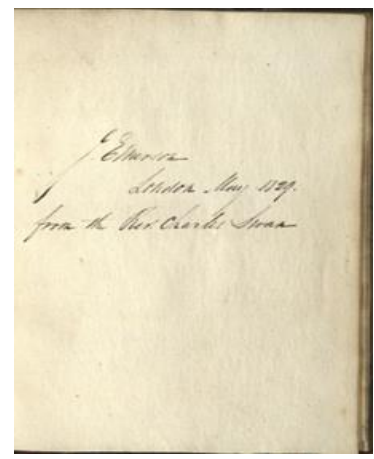 J. Emerson
London May 1829.
from the Rev. Charles Swan